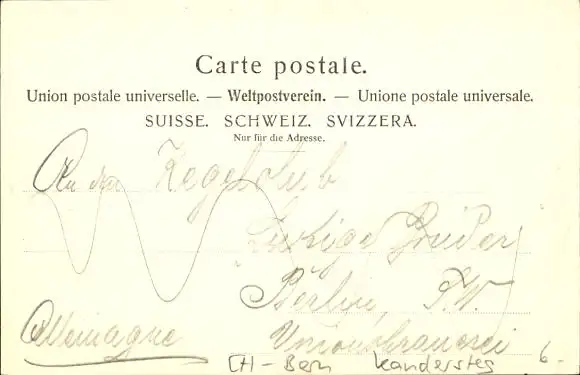 Carte postale.
Union postale universelle. — Weltpostverein. — Unione postale universale.
SUISSE. SCHWEIZ. SVIZZERA.
Nur für die Adresse.
An den Kegelclub
Brüder
Berlin, S.W.
Allemagne Unionsbrauerei
CH - Bern Kandersteg 6.-